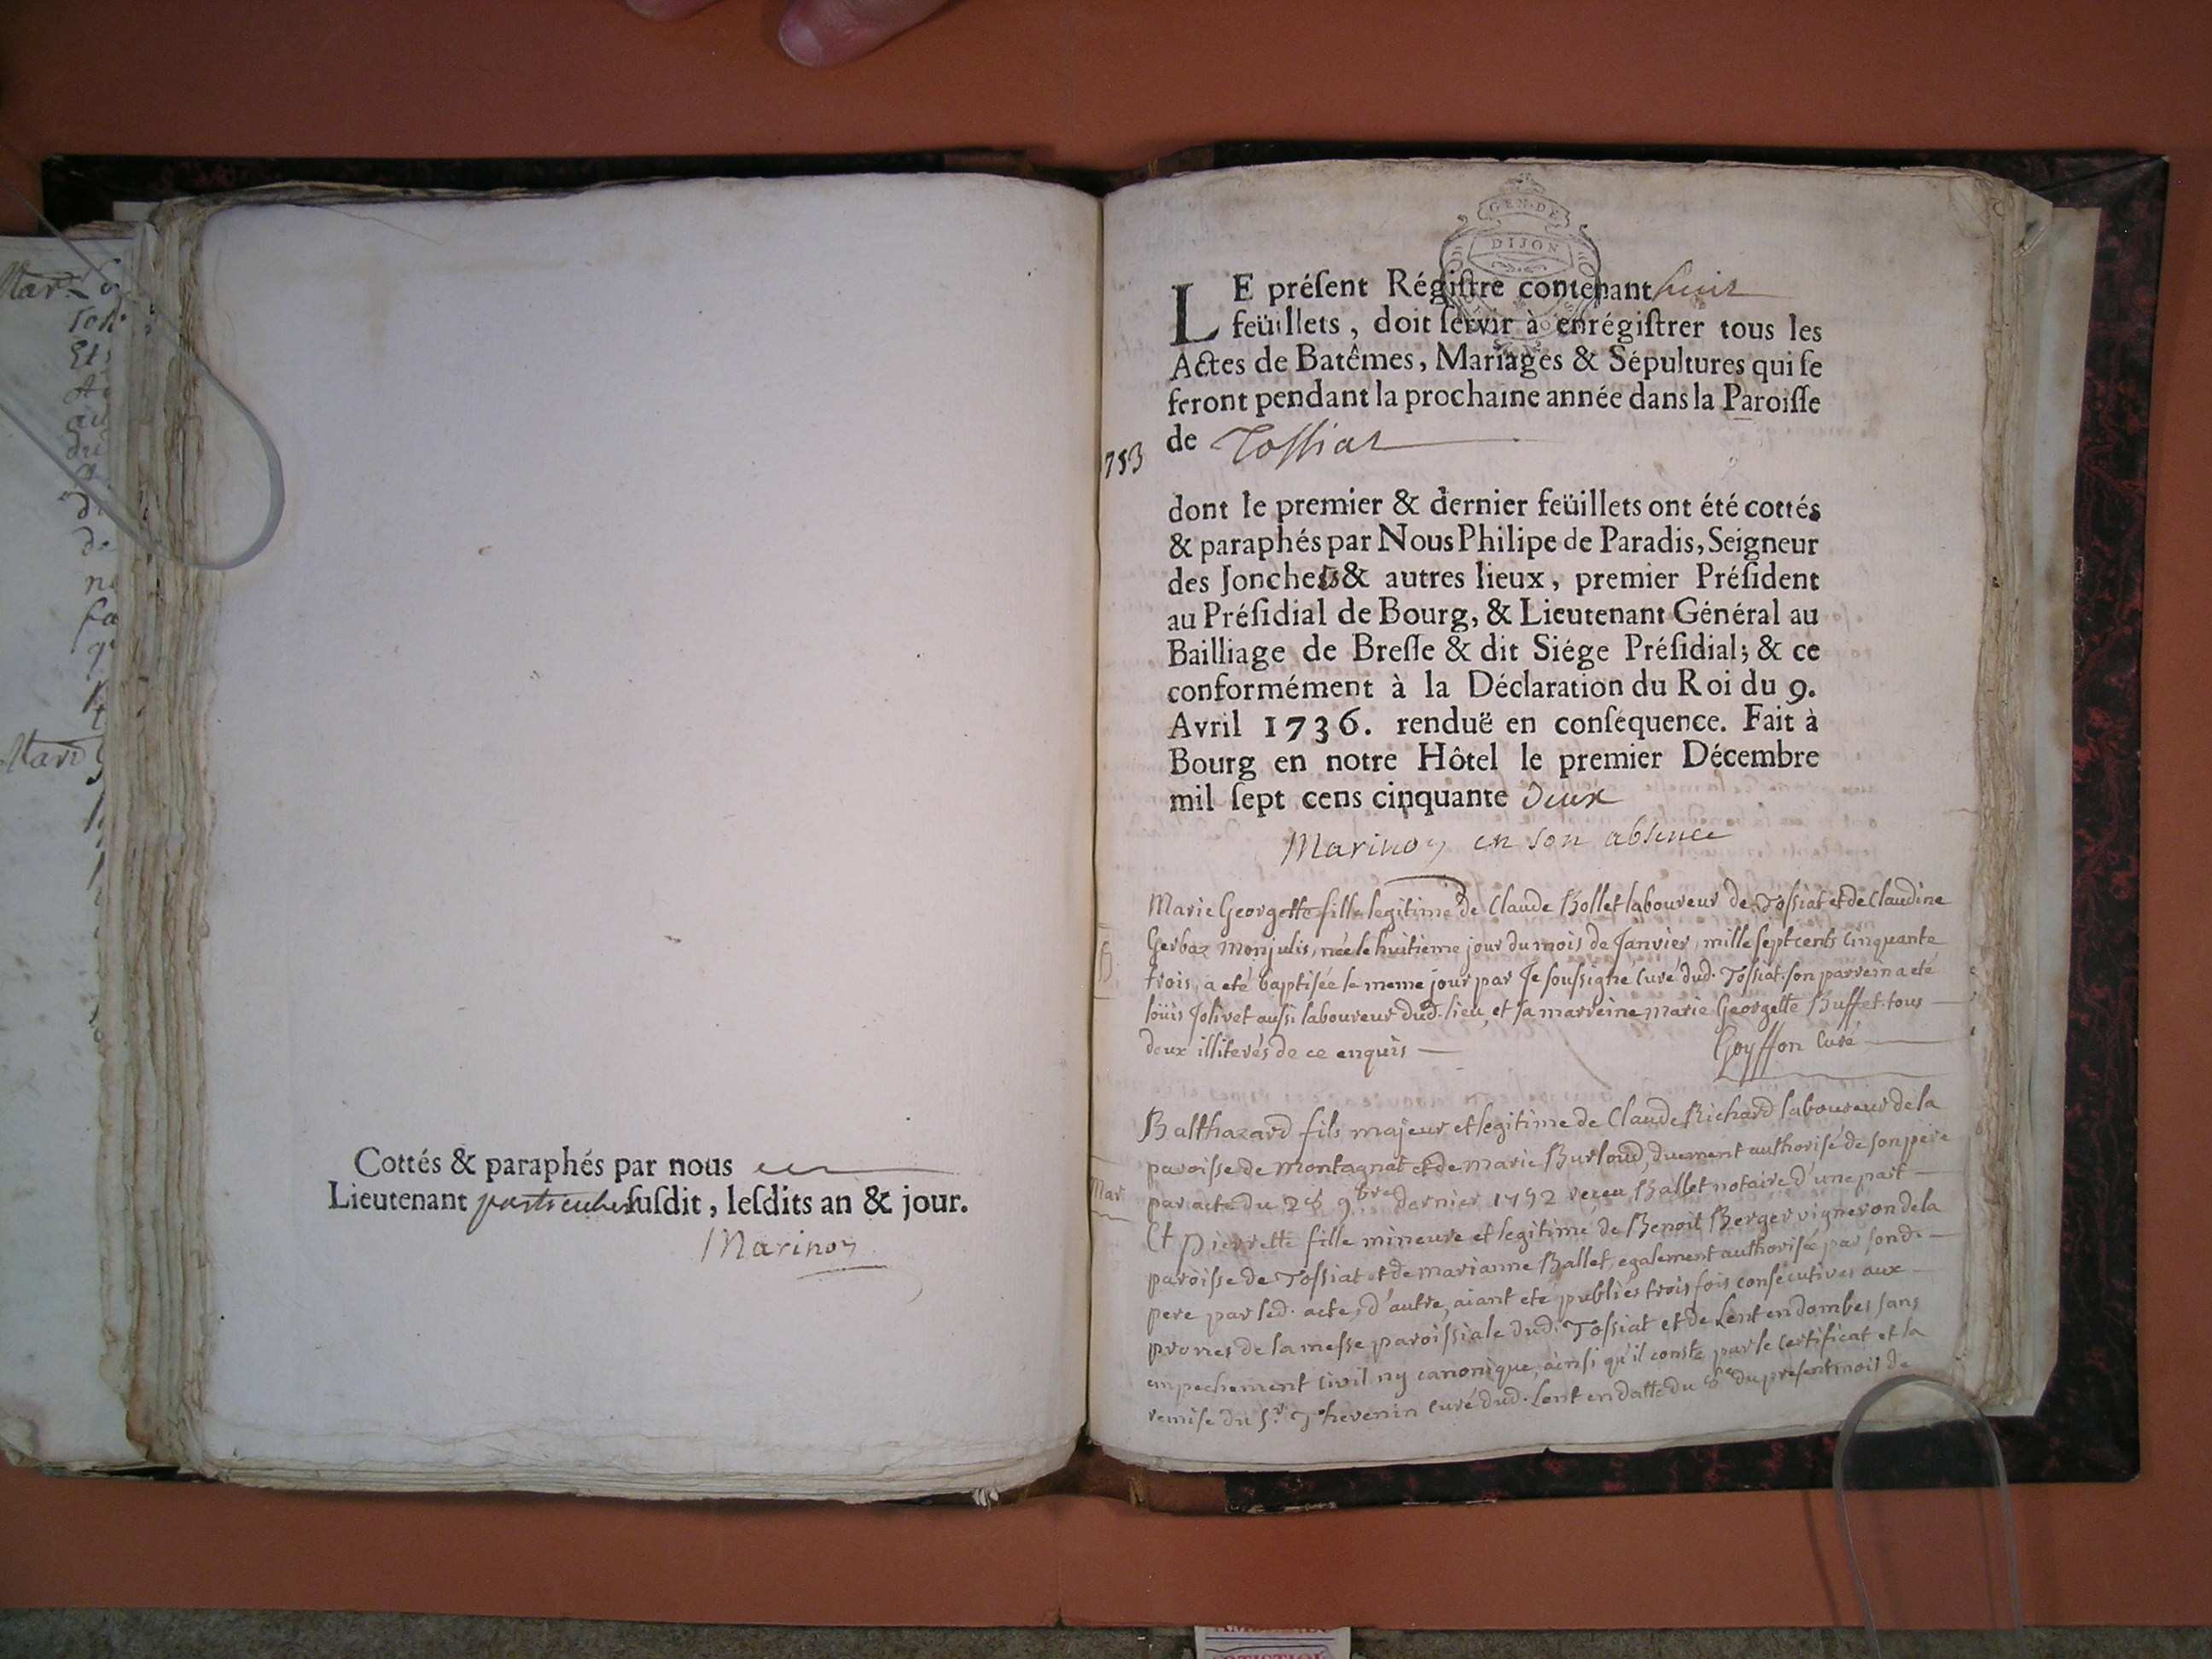 Cottés & paraphés par nous
Lieutenant particulier susdit, lesdits an & jour.
Marinon
GEN·DE
DIJON
LE présent Régistre contenant huit
feüillets, doit servir à enrégistrer tous les
Actes de Batêmes, Mariages & Sépultures qui se
feront pendant la prochaine année dans la Paroisse
de Tossiat
1753
dont le premier & dernier feüillets ont été cottés
& paraphés par Nous Philipe de Paradis, Seigneur
des Jonches & autres lieux, premier Président
au Présidial de Bourg, & Lieutenant Général au
Bailliage de Bresse & dit Siége Présidial; & ce
conformément à la Déclaration du Roi du 9.
Avril 1736. renduë en conséquence. Fait à
Bourg en notre Hôtel le premier Décembre
mil sept cens cinquante deux
Marinon en son absence
Marie Georgette fille legitime de Claude Bollet laboureur de Tossiat et de Claudine
Gerbaz Monjulis, née le huitieme jour du mois de Janvier, mille sept cents cinquante
B.
trois, a eté baptisée le meme jour par Je soussigné Curé dud. Tossiat. son parrein a eté
loüis Jolivet aussi laboureur dud. lieu, et sa marreine marie Georgette Buffet. tous
deux illiterés de ce enquis
Goyffon Curé
Balthazard fils majeur et legitime de Claude Richard laboureur de la
paroisse de Montagnat et de marie Burloud, duement authorisé de son pere
Mar
par acte du 28 9bre dernier 1752 receu Ballet notaire d'une part
Et Pierrette fille mineure et legitime de Benoit Berger vigneron de la
paroisse de Tossiat et de marianne Ballet, egalement authorisée par sond.
pere par led. acte, d'autre, aiant eté publiés trois fois consécutives aux
prones de la messe paroissiale dud. Tossiat et de Lent en dombes sans
empechement civil ny canonique, ainsi qu'il conste par le certificat et la
remise du Sr. Thevenin curé dud. Lent en datte du 8me du present mois de